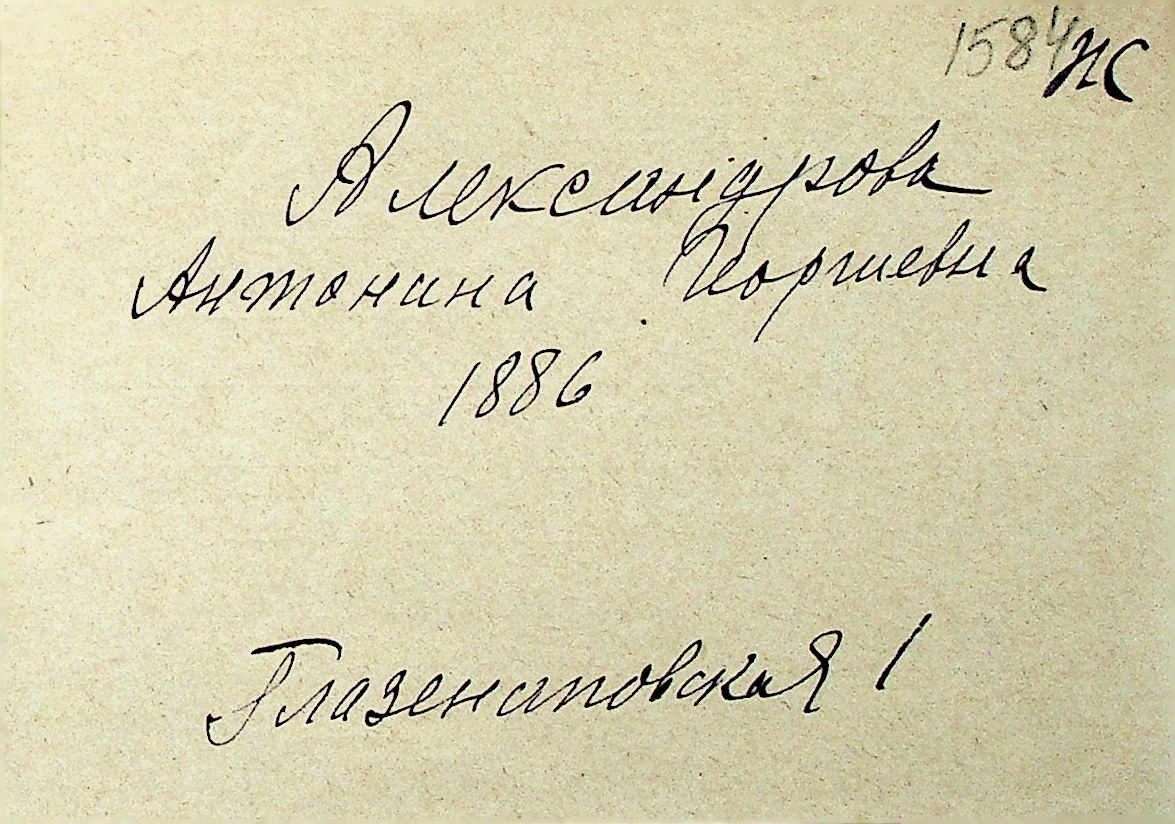 1584 ИС
Александрова
Антонина Георгиевна
1886
Глазенаповская 1